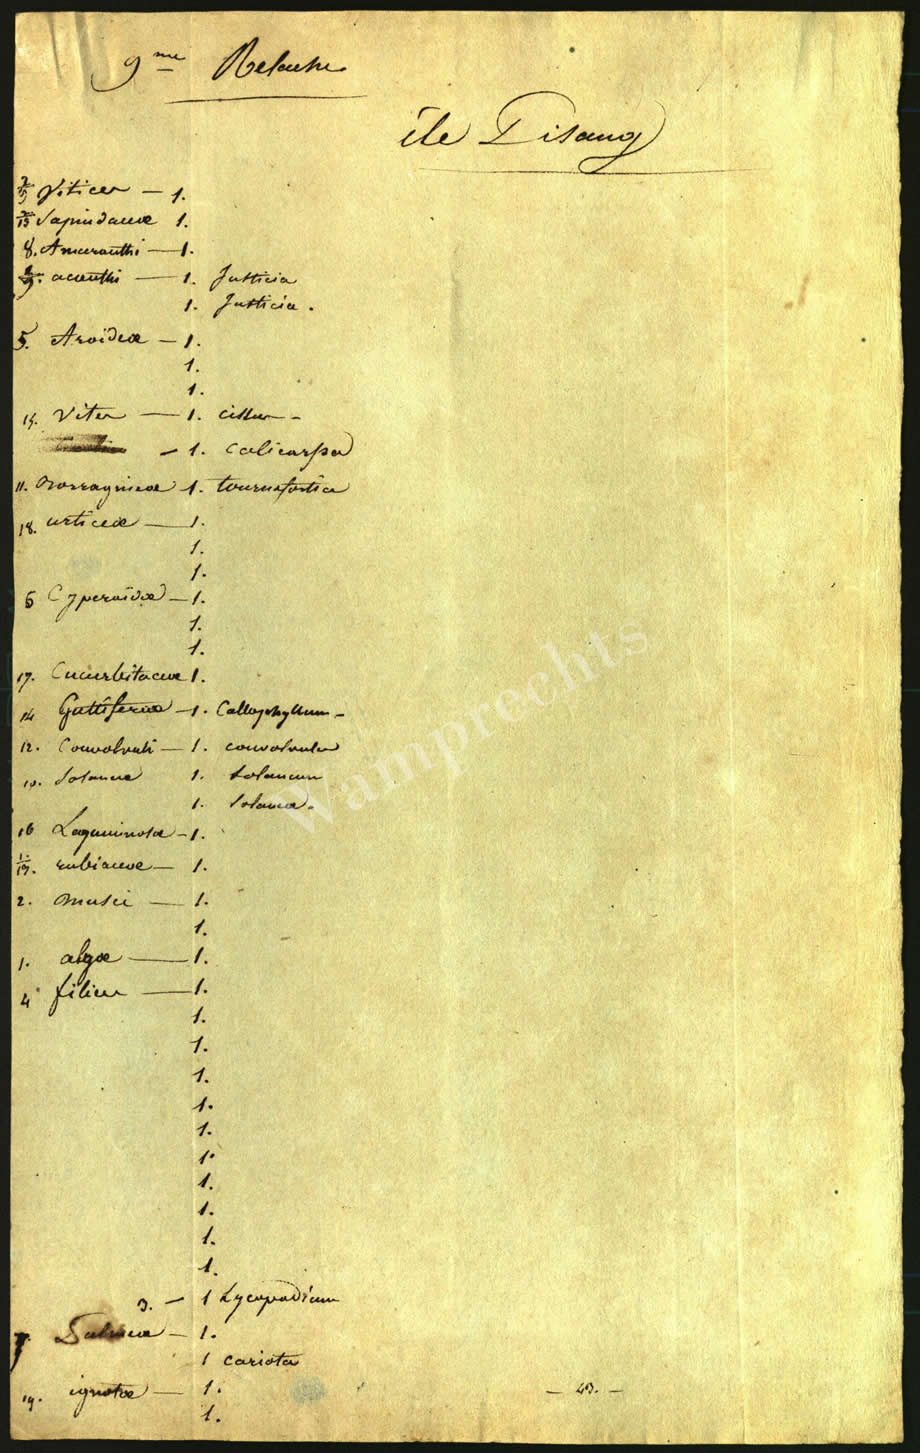 9me Relache
île Pisang
Vitices — 1.
Sapindaceæ 1.
8. Amaranthi — 1.
acanthi — 1. Justicia
1. Justicia.
5. Aroideæ — 1.
1.
1.
15. Vites — 1. cissus —
— 1. calicarpa
11. Borragineæ 1. tournefortia
18. urticeæ — 1.
1.
1.
6 Cyperoïdeæ — 1.
1.
1.
17. Cucurbitaceæ 1.
14 Guttiferæ — 1. Callophyllum —
12. Convolvuli — 1. convolvulus
10. Solaneæ 1. Solanum
1. Solanea.
16 Leguminosæ — 1.
1./13. rubiaceæ — 1.
2. musci — 1.
1.
1. algæ — 1.
4 filices — 1.
1.
1.
1.
1.
1.
1.
1.
1.
1.
1.
3. — 1 Lycopodium
7. Palmeæ — 1.
1 cariota
19. ignotæ — 1.
1.
— 43. —
Wamprechts